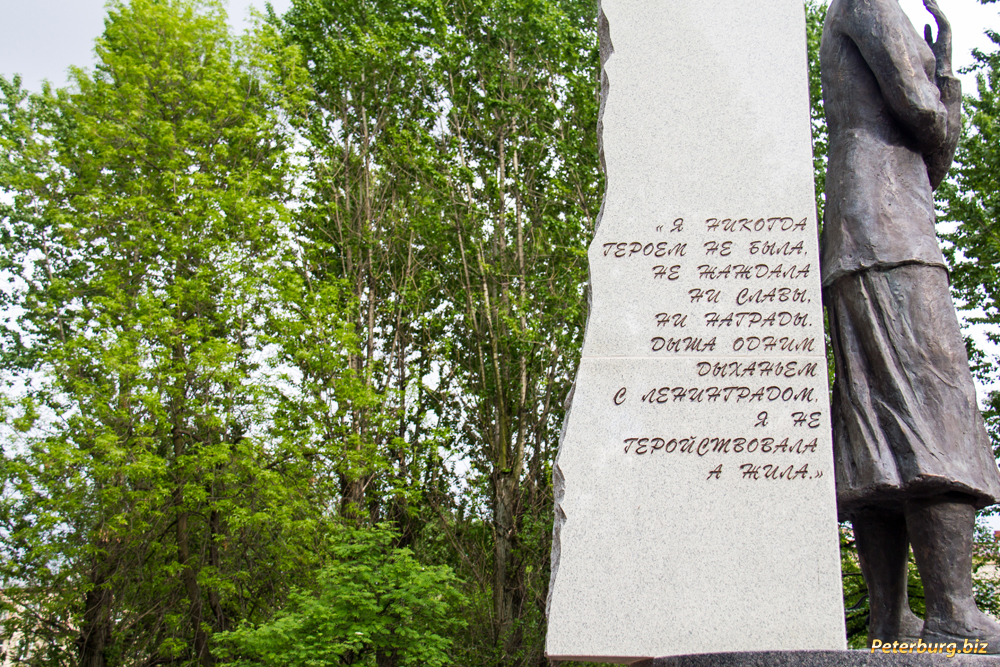 « Я НИКОГДА
ГЕРОЕМ НЕ БЫЛА,
НЕ ЖАЖДАЛА
НИ СЛАВЫ,
НИ НАГРАДЫ.
ДЫША ОДНИМ
ДЫХАНЬЕМ
С ЛЕНИНГРАДОМ,
Я НЕ
ГЕРОЙСТВОВАЛА
А ЖИЛА.»
Peterburg.biz